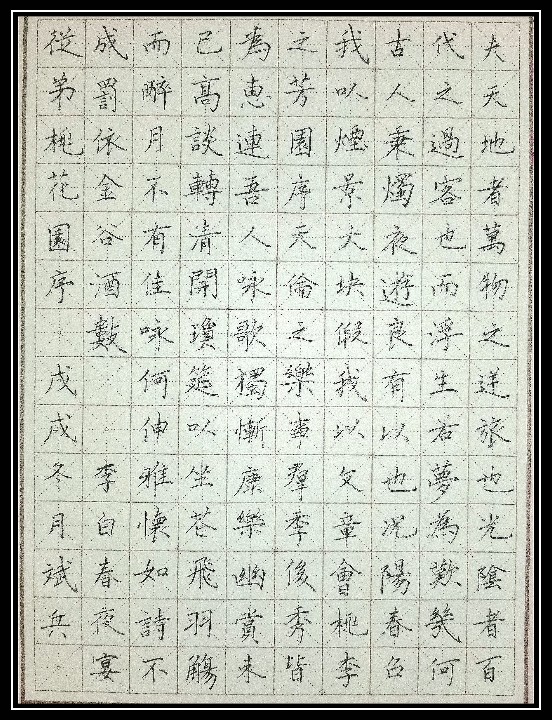 夫天地者萬物之逆旅也光陰者百
代之過客也而浮生若夢為歡幾何
古人秉燭夜遊良有以也況陽春召
我以煙景大塊假我以文章會桃李
之芳園序天倫之樂事羣季俊秀皆
為惠連吾人咏歌獨慚康樂幽賞未
已高談轉清開瓊筵以坐花飛羽觴
而醉月不有佳咏何伸雅懷如詩不
成罰依金谷酒數 李白春夜宴
從弟桃花園序 戊戌冬月斌兵